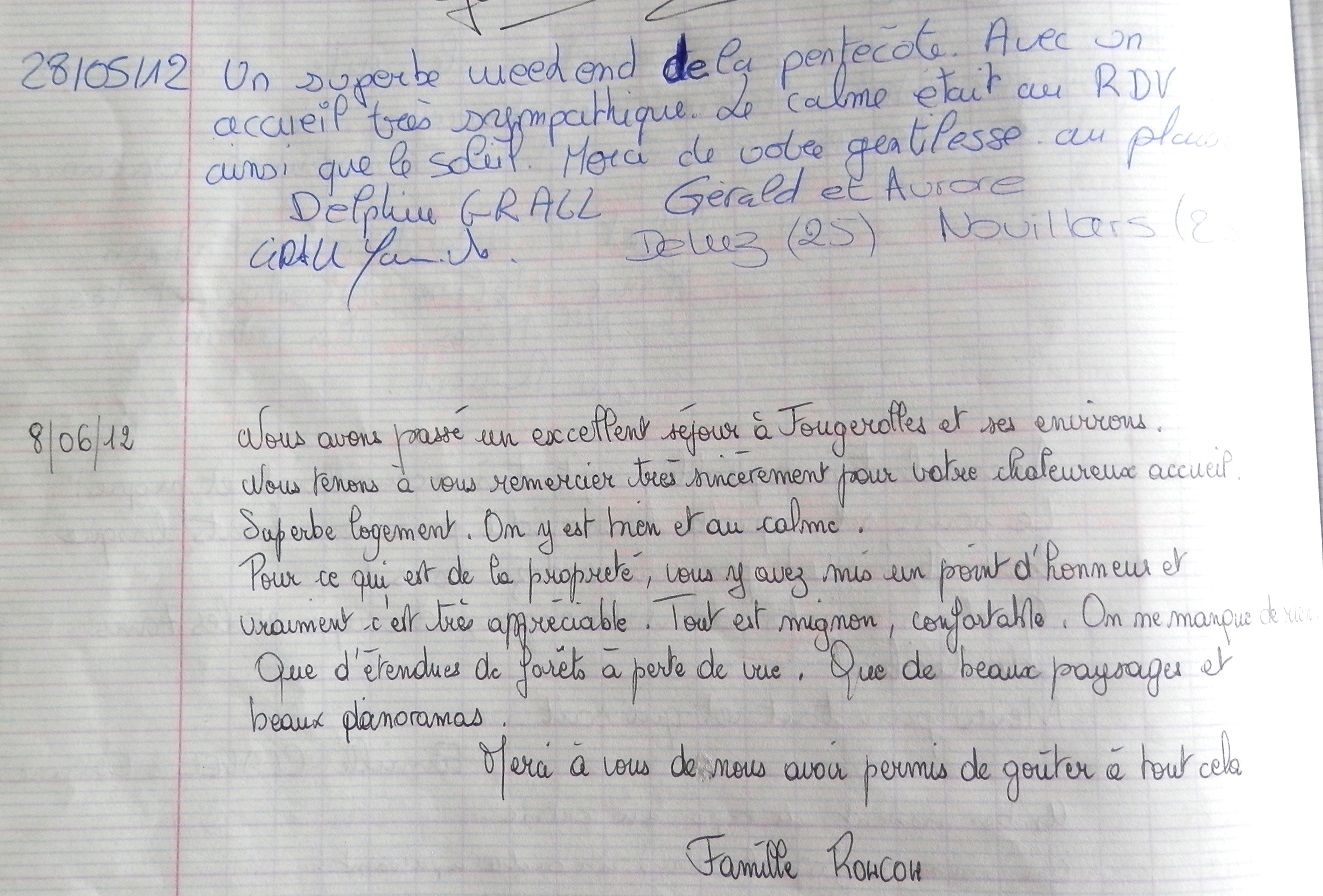 28/05/12 Un superbe weed end de la pentecôte. Avec un
accueil très sympathique. Le calme était au RDV
ainsi que le soleil. Merci de votre gentilesse. au
Gérald et Aurore
GRALL
Deluz (25) Novillars
8/06/12 Nous avons passé un excellent séjour à Fougerolles et ses environs.
Nous tenons à vous remercier très sincèrement pour votre chaleureux accueil.
Superbe logement. On y est bien et au calme.
Pour ce qui est de la propreté, vous y avez mis un point d'honneur et
vraiment c'est très appréciable. Tout est mignon, confortable. On ne manque de rien.
Que d'étendues de forêts à perte de vue. Que de beaux paysages et
beaux planoramas.
Merci à vous de nous avoir permis de goûter à tout cela
Famille